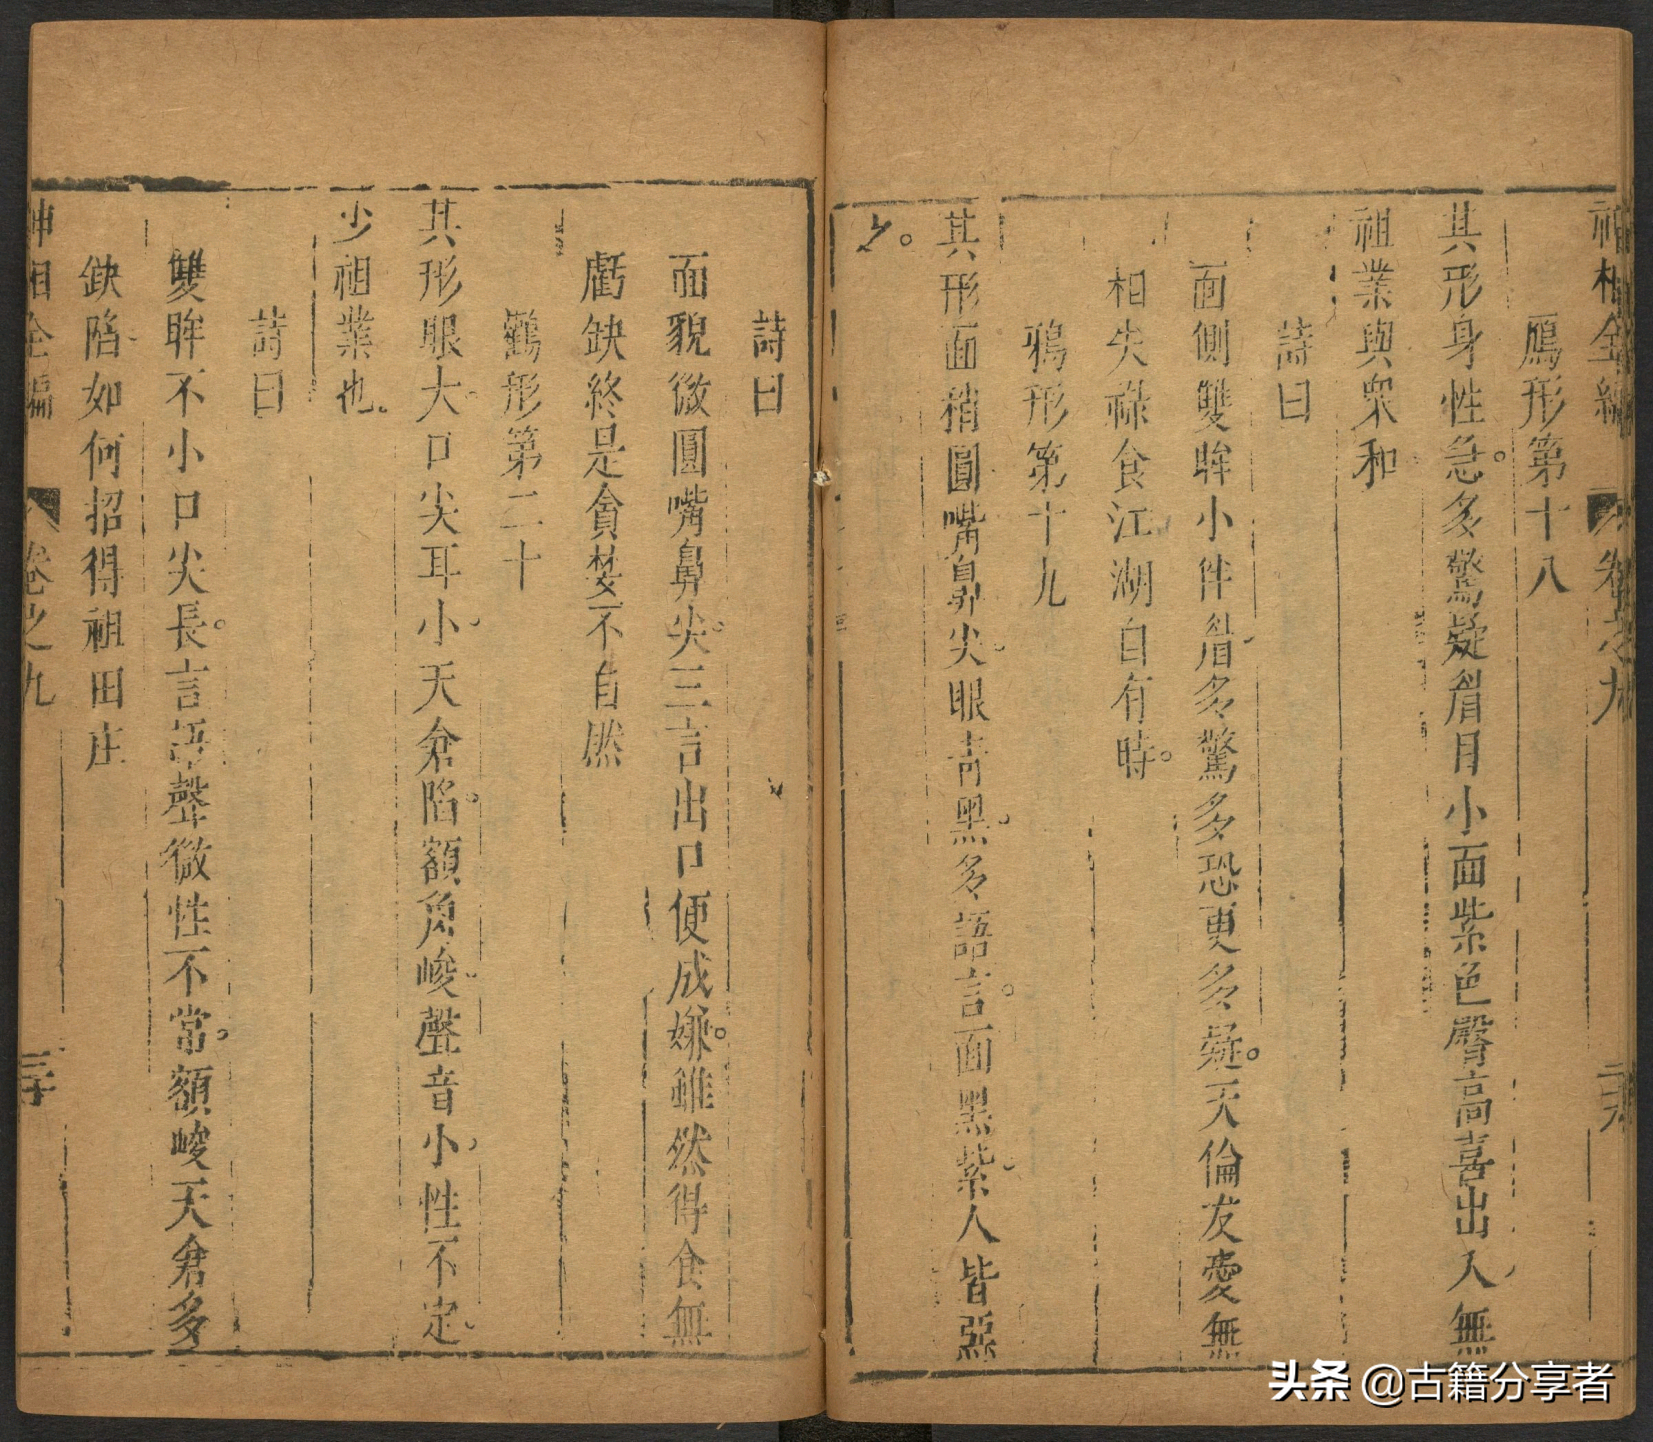 神相全編 卷之九
鴈形第十八
其形身性急。多驚疑眉目小面紫色臀高喜出入無
祖業與衆和
詩曰
面側雙眸小伴眉多驚多恐更多疑。天倫友愛無
相失祿食江湖自有時。
鴉形第十九
其形面稍圓嘴鼻尖眼青黑多語言。面黑紫人皆惡
之。
詩曰
面貌微圓嘴鼻尖。三言出口便成嫌。雖然得食無
虧缺終是貪婪不自然
鸛形第二十
其形眼大口尖耳小天倉陷。額角峻聲音小性不定
少祖業也。
詩曰
雙眸不小口尖長。言語聲微性不常。額峻天倉多
缺陷如何招得祖田庄
神相全編 卷之九 三十
头条 @古籍分享者